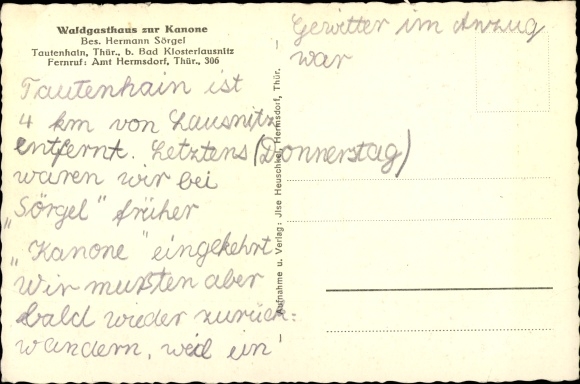 Waldgasthaus zur Kanone
Bes. Hermann Sörgel
Tautenhain, Thür., b. Bad Klosterlausnitz
Fernruf: Amt Hermsdorf, Thür., 306
Tautenhain ist
4 km von Lausnitz
entfernt. Letztens (Donnerstag)
waren wir bei
„Sörgel" früher
„Kanone" eingekehrt.
Wir mußten aber
bald wieder zurück=
wandern, weil ein
Gewitter im Anzug
war
Aufnahme u. Verlag: Jlse Heuschkel, Hermsdorf, Thür.